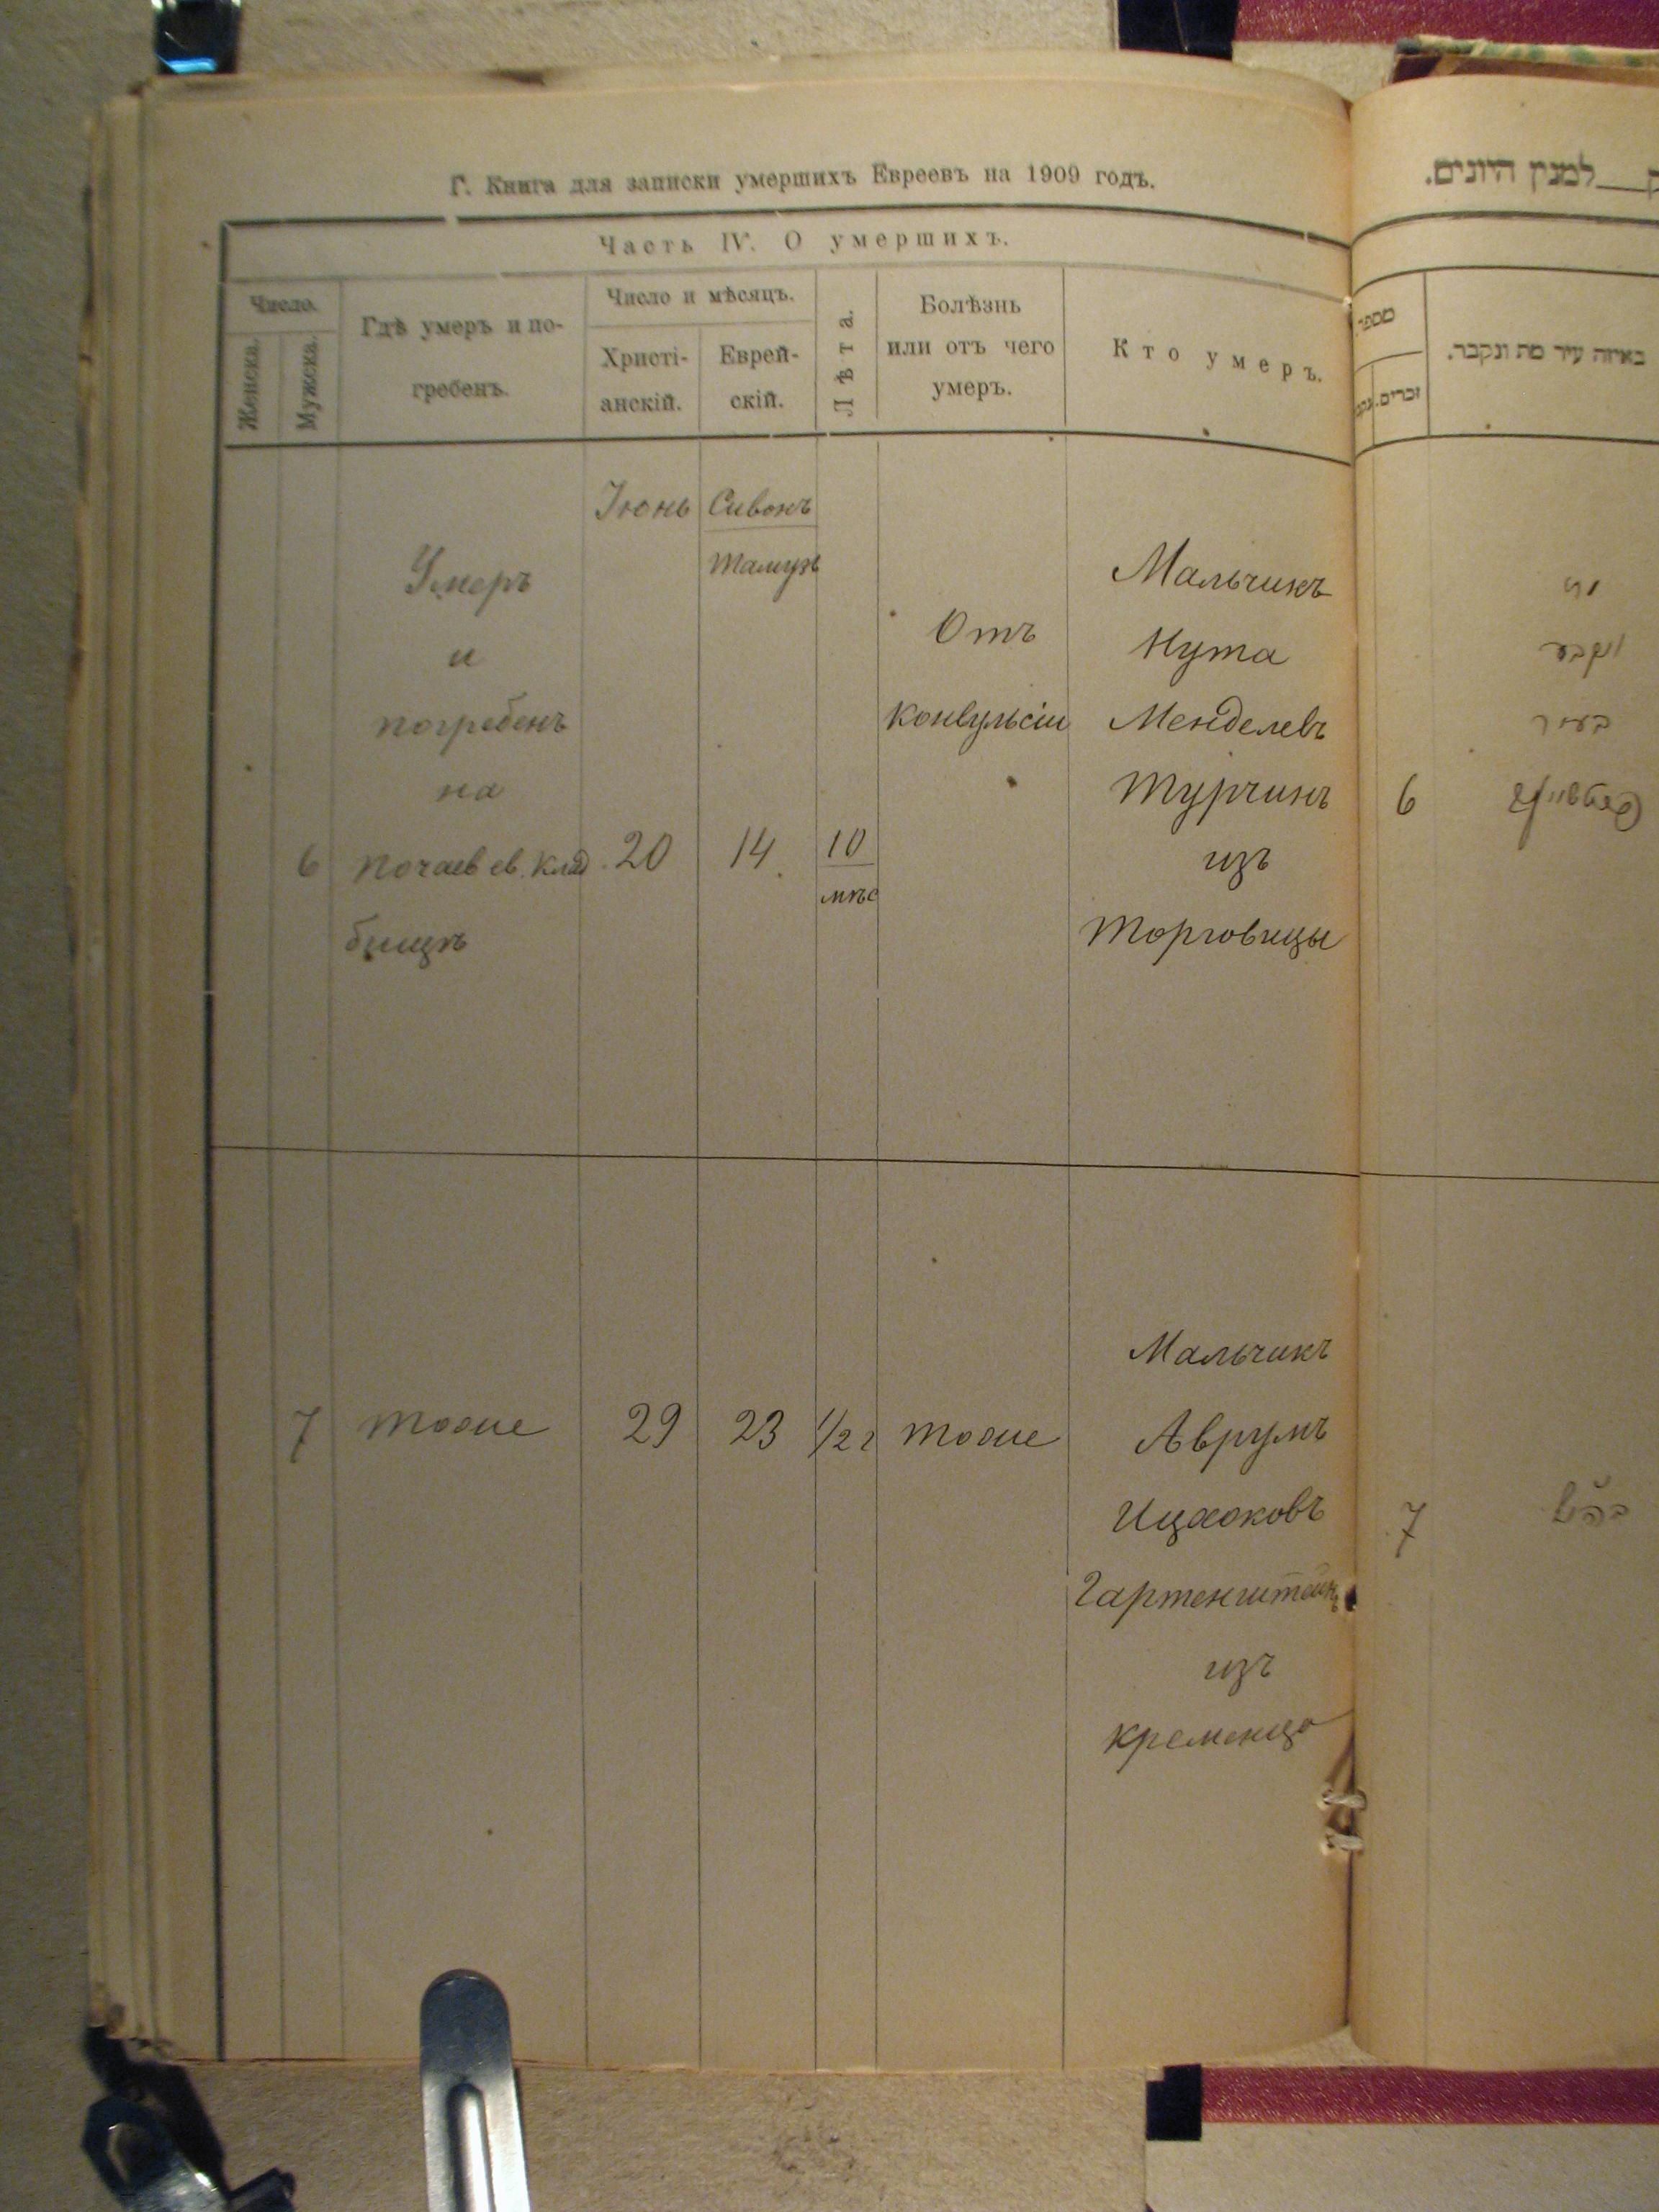 Г. Книга для записки умершихъ Евреевъ на 1909 годъ.
Часть IV. О умершихъ.
Число.
Женска.
Мужска.
Гдѣ умеръ и по-
гребенъ.
Число и мѣсяцъ.
Христі-
анскій.
Еврей-
скій.
Лѣта.
Болѣзнь
или отъ чего
умеръ.
Кто умеръ.
Іюнь
Сивонъ
Тамузъ
6
Умеръ
и
погребенъ
на
Почаев ев. клад
бищѣ
20
14
10
мѣс
Отъ
конвульсіи
Мальчикъ
Нута
Менделевъ
Турчинъ
изъ
Торговицы
7
тоже
29
23
1/2 г
тоже
Мальчикъ
Аврумъ
Ицхоковъ
Гартенштейнъ
изъ
Кременца
למנין היונים.
מספר
זכרים.
באיזה עיר מת ונקבר.
6
בעיר
7